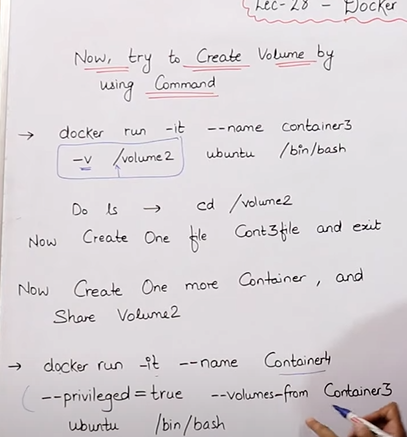 Lec-28 - Docker
Now, try to Create Volume by
using Command
→ docker run -it --name container3
-v /volume2 ubuntu /bin/bash
Do ls → cd /volume2
Now Create One file Cont3file and exit
Now Create One more Container, and
Share Volume2
→ docker run -it --name Container4
--privileged=true --volumes-from Container3
ubuntu /bin/bash